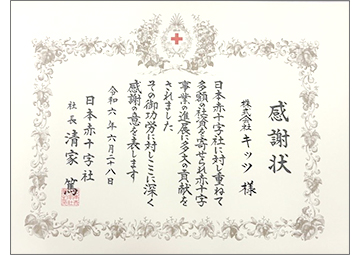 感謝状
株式会社 キッツ 様
日本赤十字社に対し重ねて
多額の浄資を寄せられ赤十字
事業の進展に多大の貢献を
されました
その御功労に対しここに深く
感謝の意を表します
令和六年六月二十八日
日本赤十字社
社長 清家 篤